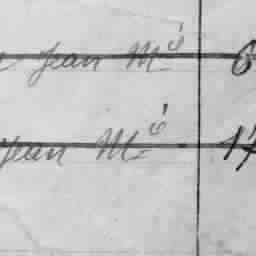 Jean Mc 6
Jean Mc 17